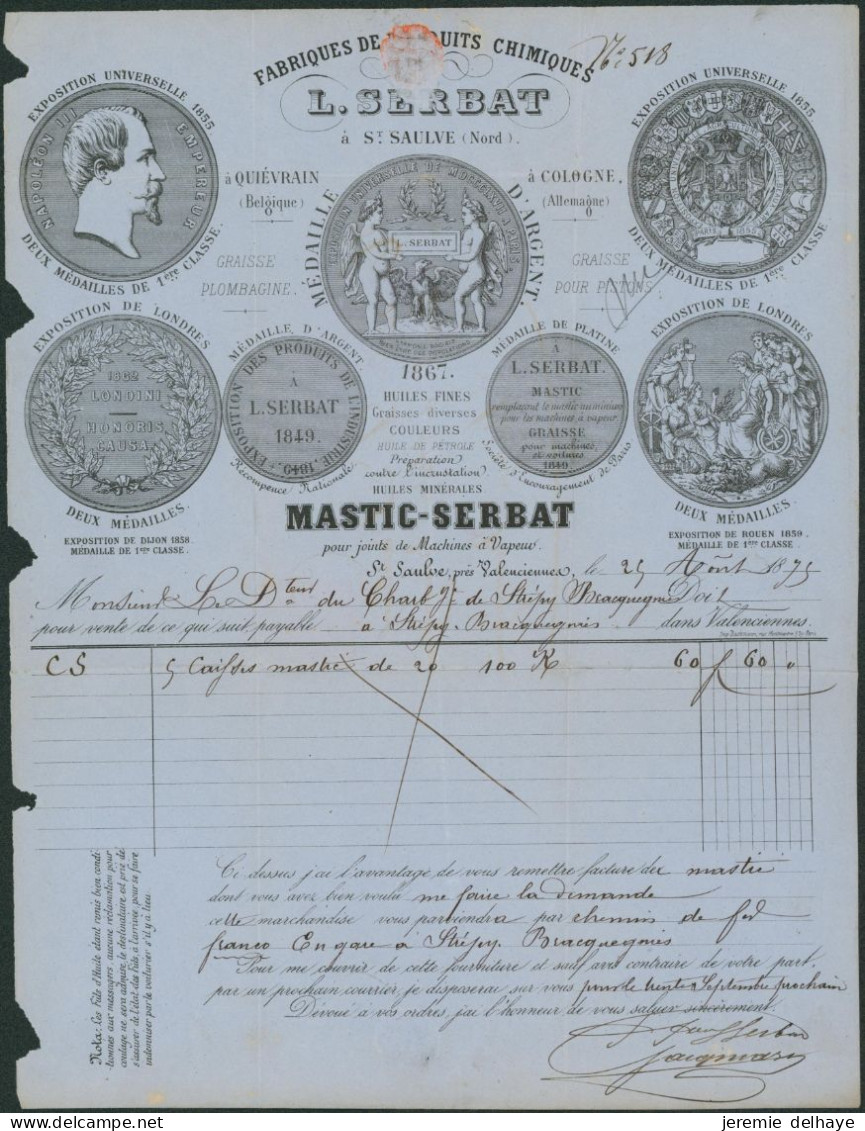 FABRIQUES DE PRODUITS CHIMIQUES
No: 518
L. SERBAT
à St SAULVE (Nord).
à QUIÉVRAIN
(Belgique)
à COLOGNE.
(Allemagne)
EXPOSITION UNIVERSELLE 1855
NAPOLÉON III EMPEREUR
DEUX MÉDAILLES DE 1ère CLASSE.
EXPOSITION UNIVERSELLE 1855
DEUX MÉDAILLES DE 1ère CLASSE
MÉDAILLE D'ARGENT.
EXPOSITION UNIVERSELLE DE MDCCCLXVII A PARIS
L. SERBAT
1867.
GRAISSE
PLOMBAGINE.
GRAISSE
POUR PISTONS
EXPOSITION DE LONDRES
1862
LONDINI
HONORIS
CAUSA
DEUX MÉDAILLES.
EXPOSITION DE DIJON 1858
MÉDAILLE DE 1ère CLASSE.
MÉDAILLE D'ARGENT.
EXPOSITION DES PRODUITS DE L'INDUSTRIE 1849
À
L. SERBAT
1849.
Récompence Nationale.
HUILES FINES
Graisses diverses
COULEURS
HUILE DE PÉTROLE
Préparation
contre l'incrustation.
HUILES MINÉRALES.
MÉDAILLE DE PLATINE
À
L. SERBAT.
MASTIC
remplaçant le mastic au minium
pour les machines à vapeur
GRAISSE
pour machines
et voitures
1849
Société d'Encouragement de Paris
EXPOSITION DE LONDRES
DEUX MÉDAILLES.
EXPOSITION DE ROUEN 1859
MÉDAILLE DE 1ère CLASSE.
MASTIC-SERBAT
pour joints de Machines à Vapeur.
St Saulve, près Valenciennes, le 25 Août 1875
Monsieur Le Dteur du Charb ge de Strépy Bracquegnies Doit
pour vente de ce qui suit payable à Strépy-Bracquegnies dans Valenciennes.
CS 5 Caisses mastic de 20 100 K 60 f 60 "
Ci dessus j'ai l'avantage de vous remettre facture de mastic
dont vous avez bien voulu me faire la demande
cette marchandise vous parviendra par chemin de fer
franco En gare à Strépy. Bracquegnies
Pour me couvrir de cette fourniture et sauf avis contraire de votre part,
par un prochain courrier, je disposerai sur vous pour le trente Septembre prochain
Dévoué à vos ordres, j'ai l'honneur de vous saluer sincèrement.
Serbat
Jacqmart
Nota: Les Fûts d'Huile étant remis bien condi-
tionnés aux messagers, aucune réclamation pour
coulage ne sera admise, le destinataire est prié de
s'assurer de l'état des Fûts, à l'arrivée, pour se faire
indemniser par le voiturier s'il y a lieu
jeremie delhaye